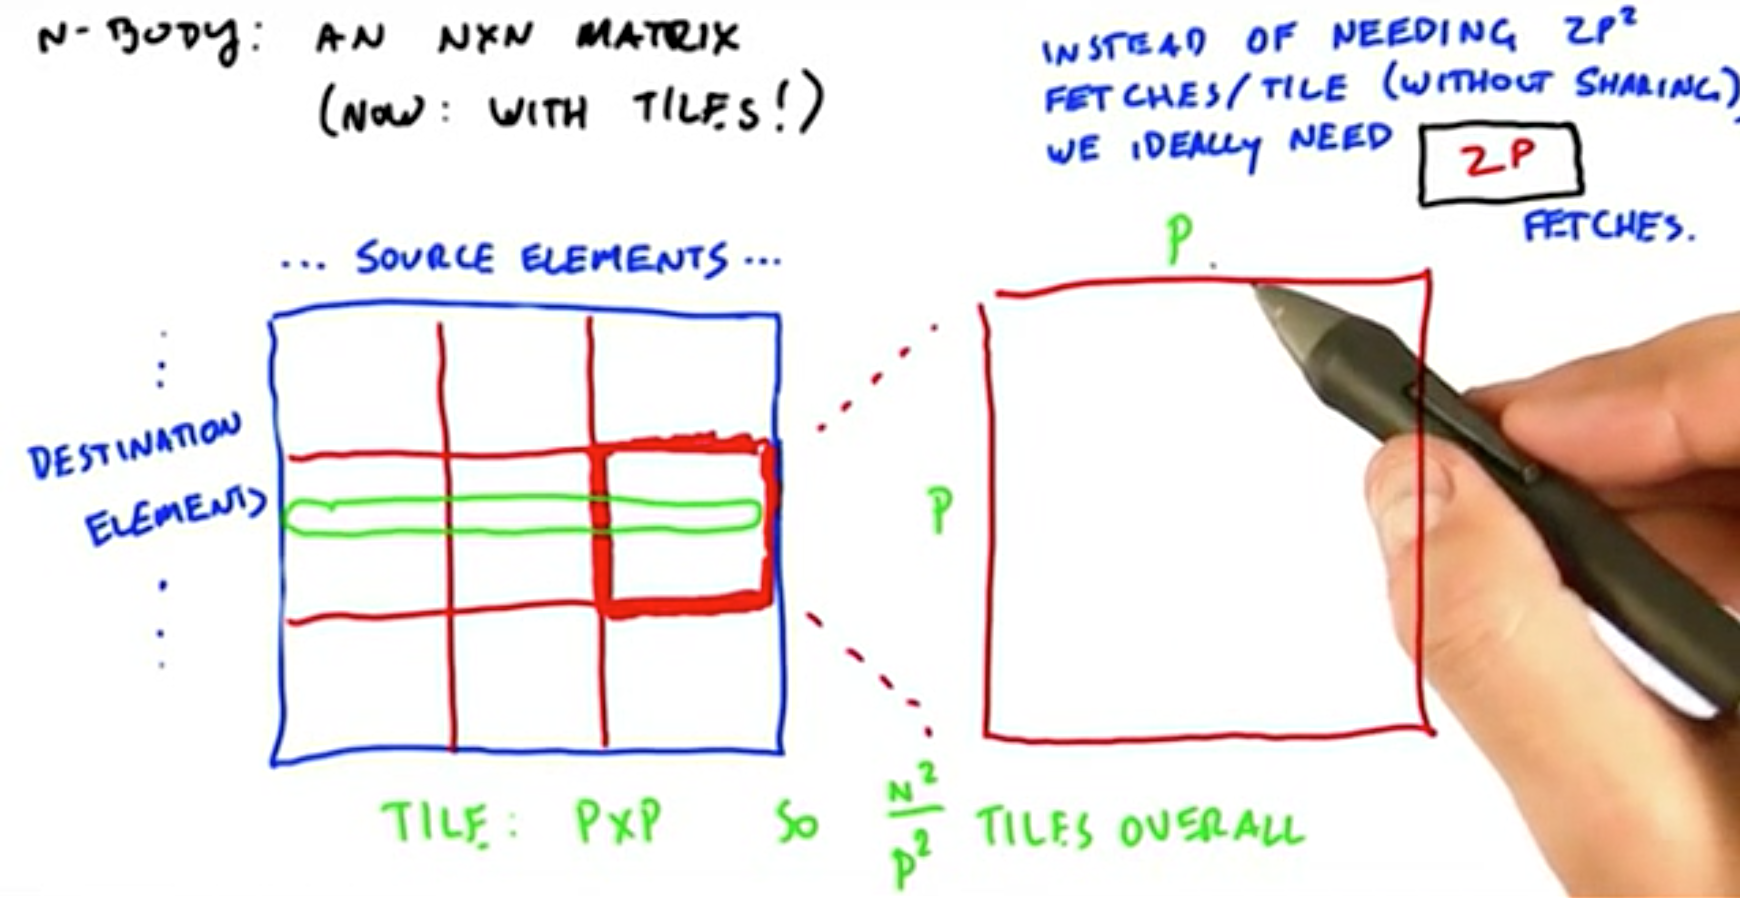 N-BODY: AN NXN MATRIX
(NOW: WITH TILES!)
INSTEAD OF NEEDING 2P²
FETCHES/TILE (WITHOUT SHARING),
WE IDEALLY NEED 2P
FETCHES.
... SOURCE ELEMENTS ...
DESTINATION
ELEMENTS
P
P
TILE: PXP SO N²/P² TILES OVERALL